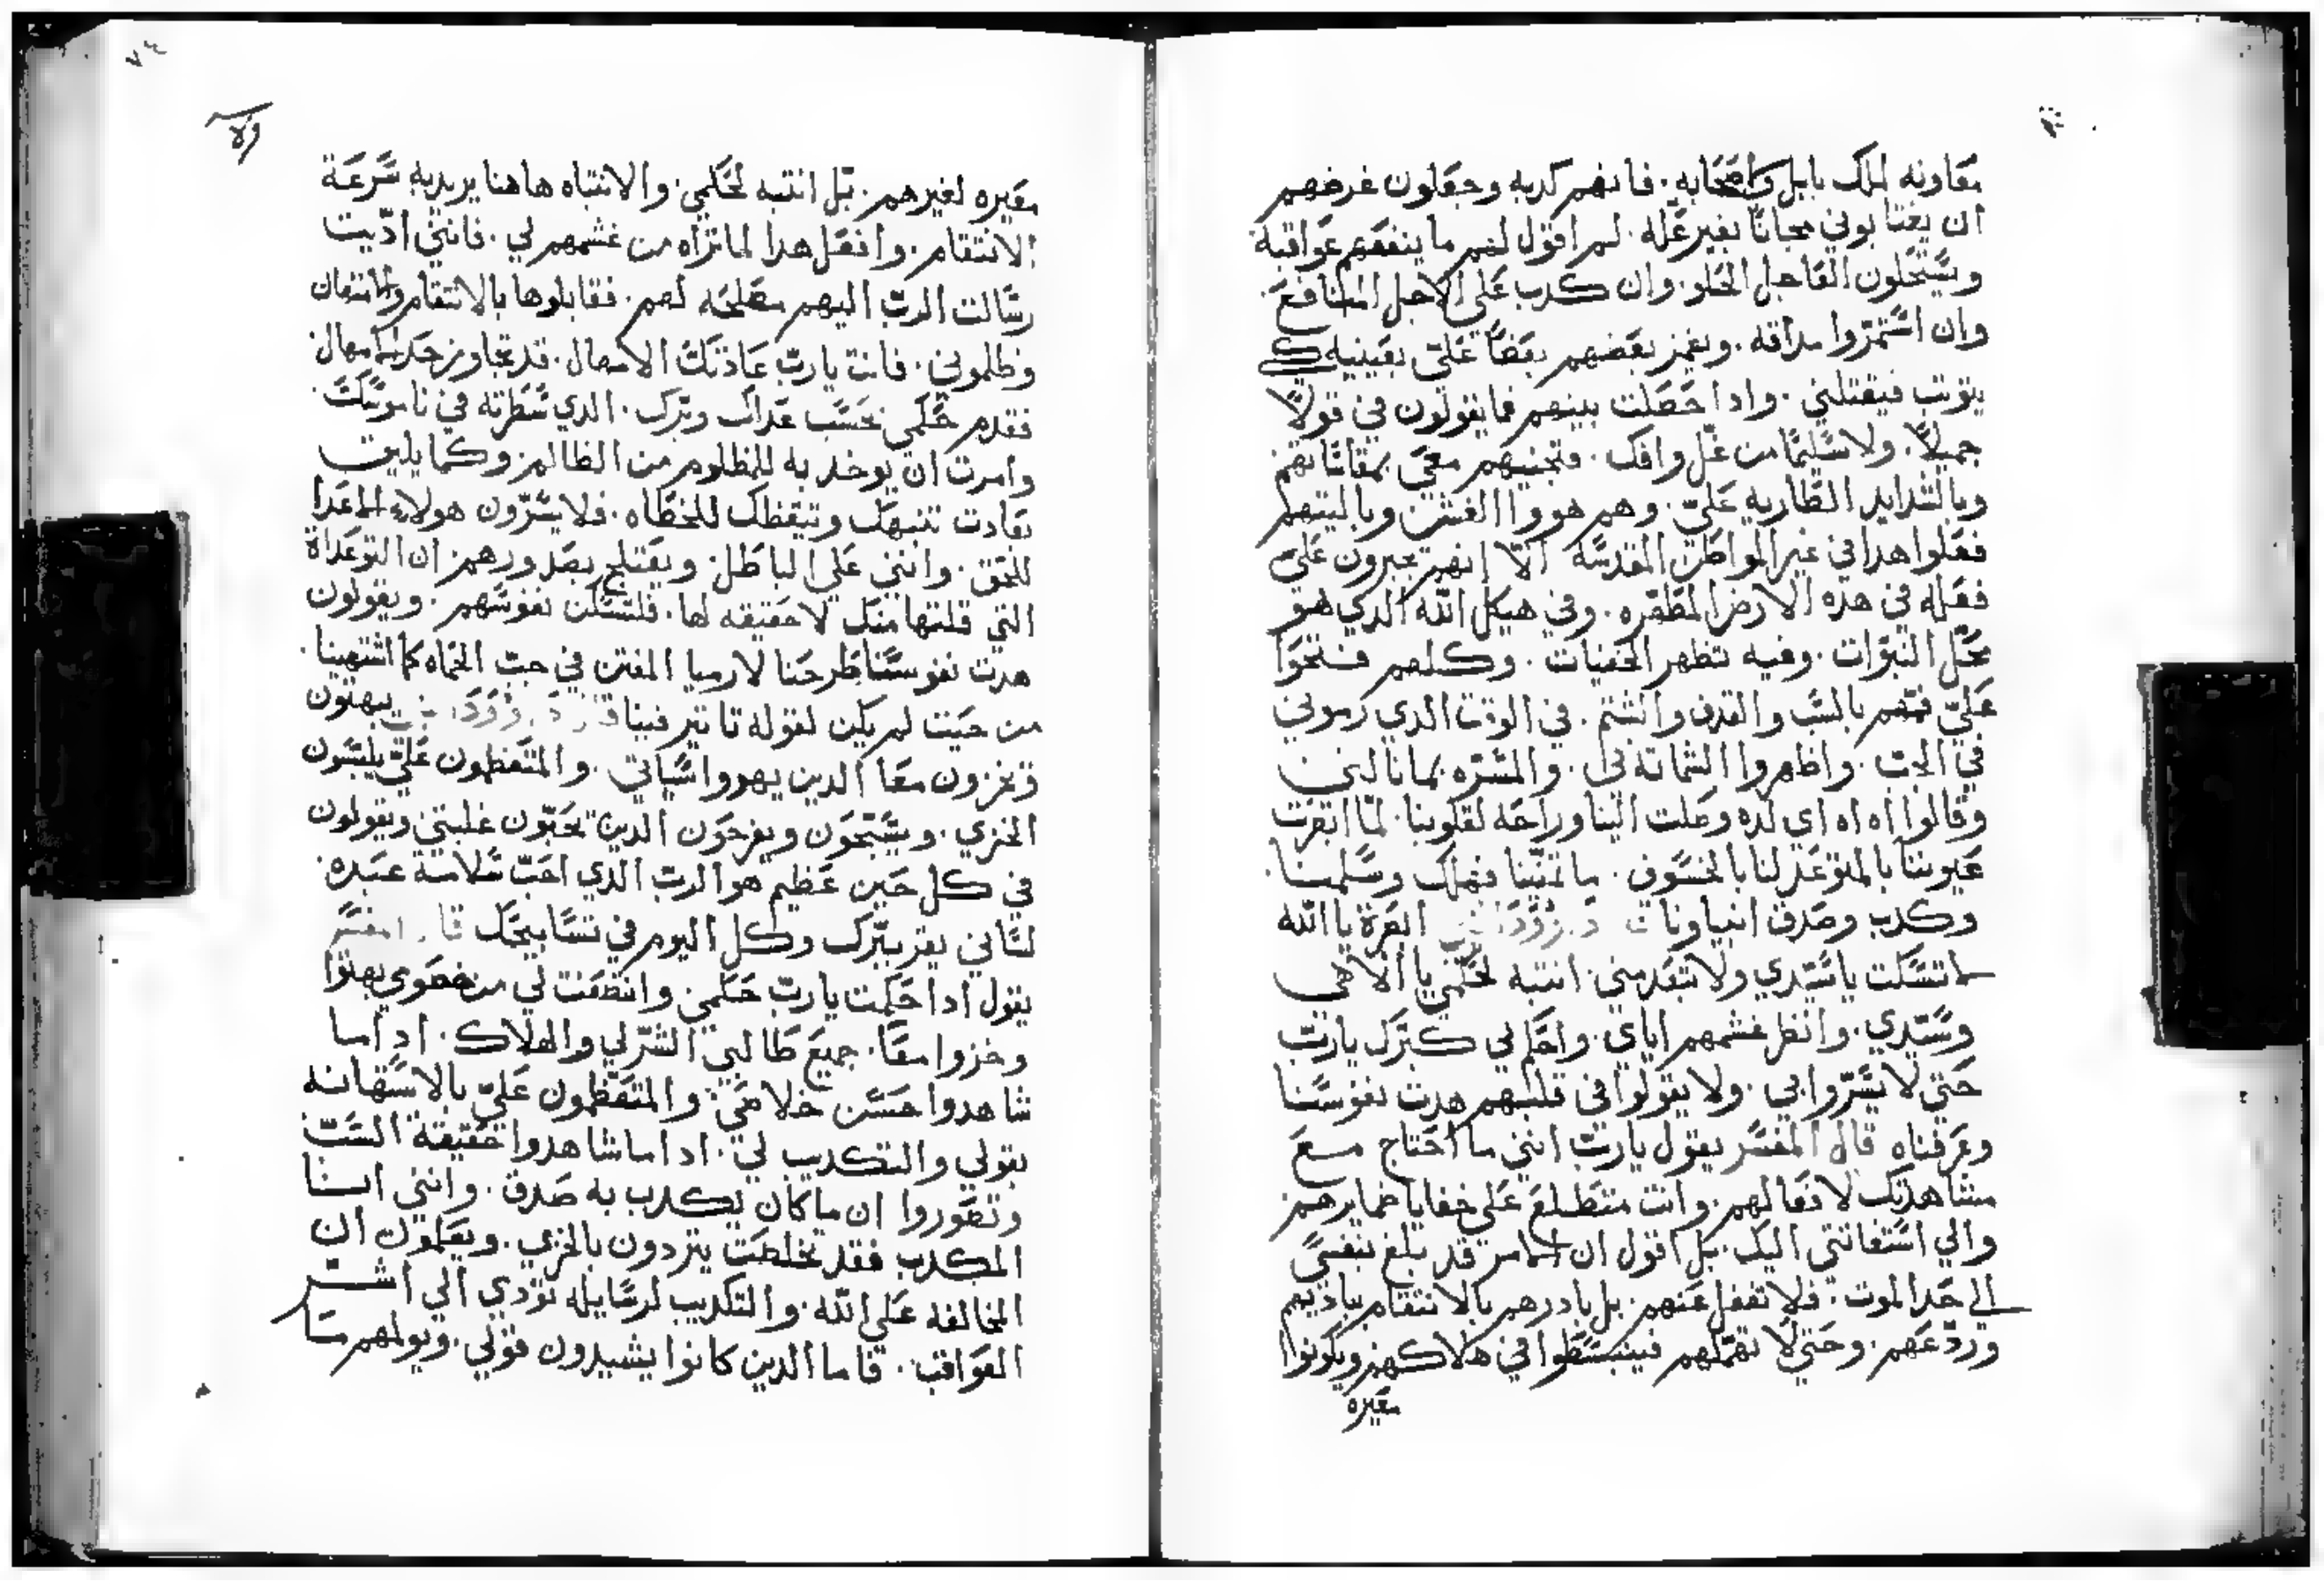 معاونه لملك بابل واصحابه. فانهم كدبه وجعلون غرضهم
ان يغتابوني مجانًا بغير عله. لم اقول لهم ما ينفعهم عواقبه
ويستحلون العاجل الحلو. وان كدب علي الاجل النافع
وان استمرّوا مداقه. ويغمز بعضهم بعضًا عليّ بعينيه كي
يتوتب فيقتلني. وادا حصلت بينهم فما يقولون فيّ قولًا
جميلًا. ولا سليمًا من غل وافك. فتجنيهم معي بمقاتاتهم
وبالشدايد الطاريه عليّ. وهم هووا الغش وياليتهم
فعلوا هدا في غير المواطن المقدسة الّا انهم يجبرون علي
فعله في هده الارض المطهره. وفي هيكل الله الدي هو
محل النبوّات. وفيه تظهر الخفيات. وكلهم فتحوا
عليّ فمهم بالسب والقدف والشتم. في الوقت الدي رموني
في الجبّ. واظهروا الشماتة لي. والمسرّه بما نالني
وقالوا اه اه اي لده وصلت الينا وراحه لقلوبنا. لمّا ابصرت
عيوننا بالمتوعد لنا بالخسوف. ما تمنّينا فهلك وسلمنا.
وكدب وصدق انبياونا ابصرة يا الله
لا تسكت يا سيّدي ولا تبعد مني. انتبه لحكمي يا الاهي
وسيّدي. وانظر غشمهم اياي. واحكم لي كبرّك يا ربّ
حتي لا يسرّوا بي. ولا يقولوا في قلبهم هدت نفوسنا
وغرقناه قال المفسر يقول يا ربّ انني ما احتاج مع
مشاهدتك لافعالهم. وانت متطلع علي خفايا ضمايرهم
والي استغاثتي اليك. بل اقول ان الامر قد بلغ بنفسي
الي حد الموت. فلا تغفل عنهم. بل بادرهم بالانتقام بتاديبهم
وردّعهم. وحتي لا تهملهم فينبسطوا في هلاكهم ويكونوا
معيره
معيره لغيرهم. بل انتبه لحكمي. والانتباه هاهنا يريد به سرعة
الانتقام. وافعل هدا لما تراه من غشمهم لي. فانني ادّيت
رسالت الربّ اليهم مصلحه لهم. فقابلوها بالانتقام والامتهان
وظلموني. فانت يا ربّ عادتك الامهال. قد تجاوز حد الامهال
فقدم حكمي بحسب عدلك وبرّك. الدي سطرته في ناموسك
وامرت ان يوخد به للمظلوم من الظالم. وكما يليق
بعادت تنبهك وتيقظك للخطاه. فلا يسرّون هولاء الاعدا
للحق. وانني علي الباطل. ويعتلج بصدورهم ان التوعداة
التي قلتها منك لا حقيقه لها. فلتسكن نفوسهم. ويقولون
هدت نفوسنا طرحنا لارميا المفتن في جبّ الحماه كما اشتهينا.
من حيت لم يكن لقوله تاتير فينا يبهتون
ويخزون معًا الدين يهووا سياتي. والمتعظمون عليّ يلبسون
الخزي. ويبتهجون ويفرحون الدين يحبّون غلبتي ويقولون
في كل حين عظيم هو الرب الدي احبّ سلامة عبده.
لساني يقر ببّرك وكل اليوم في تسابيحك قال المفسر
يقول ادا حكمت يا ربّ حكمي. وانتصفت لي من خصومي بهتوا
وخزوا معًا. جميع طالبي الشرّ لي والهلاك. ادا ما
شاهدوا حسن خلاصي. والمتعظمون عليّ بالاستهانه
بقولي والتكديب لي. ادا ما شاهدوا حقيقة السبّ
وتصوروا ان ما كان يكدب به صدق. وانني انسنا
المكدب فقد تخلصت يتردون بالخزي. ويعلمون ان
المخالفه علي الله. والتكديب لرسايله تودي الي اشر
العواقب. فاما الدين كانوا يشيدون قولي. ويولمهم ما